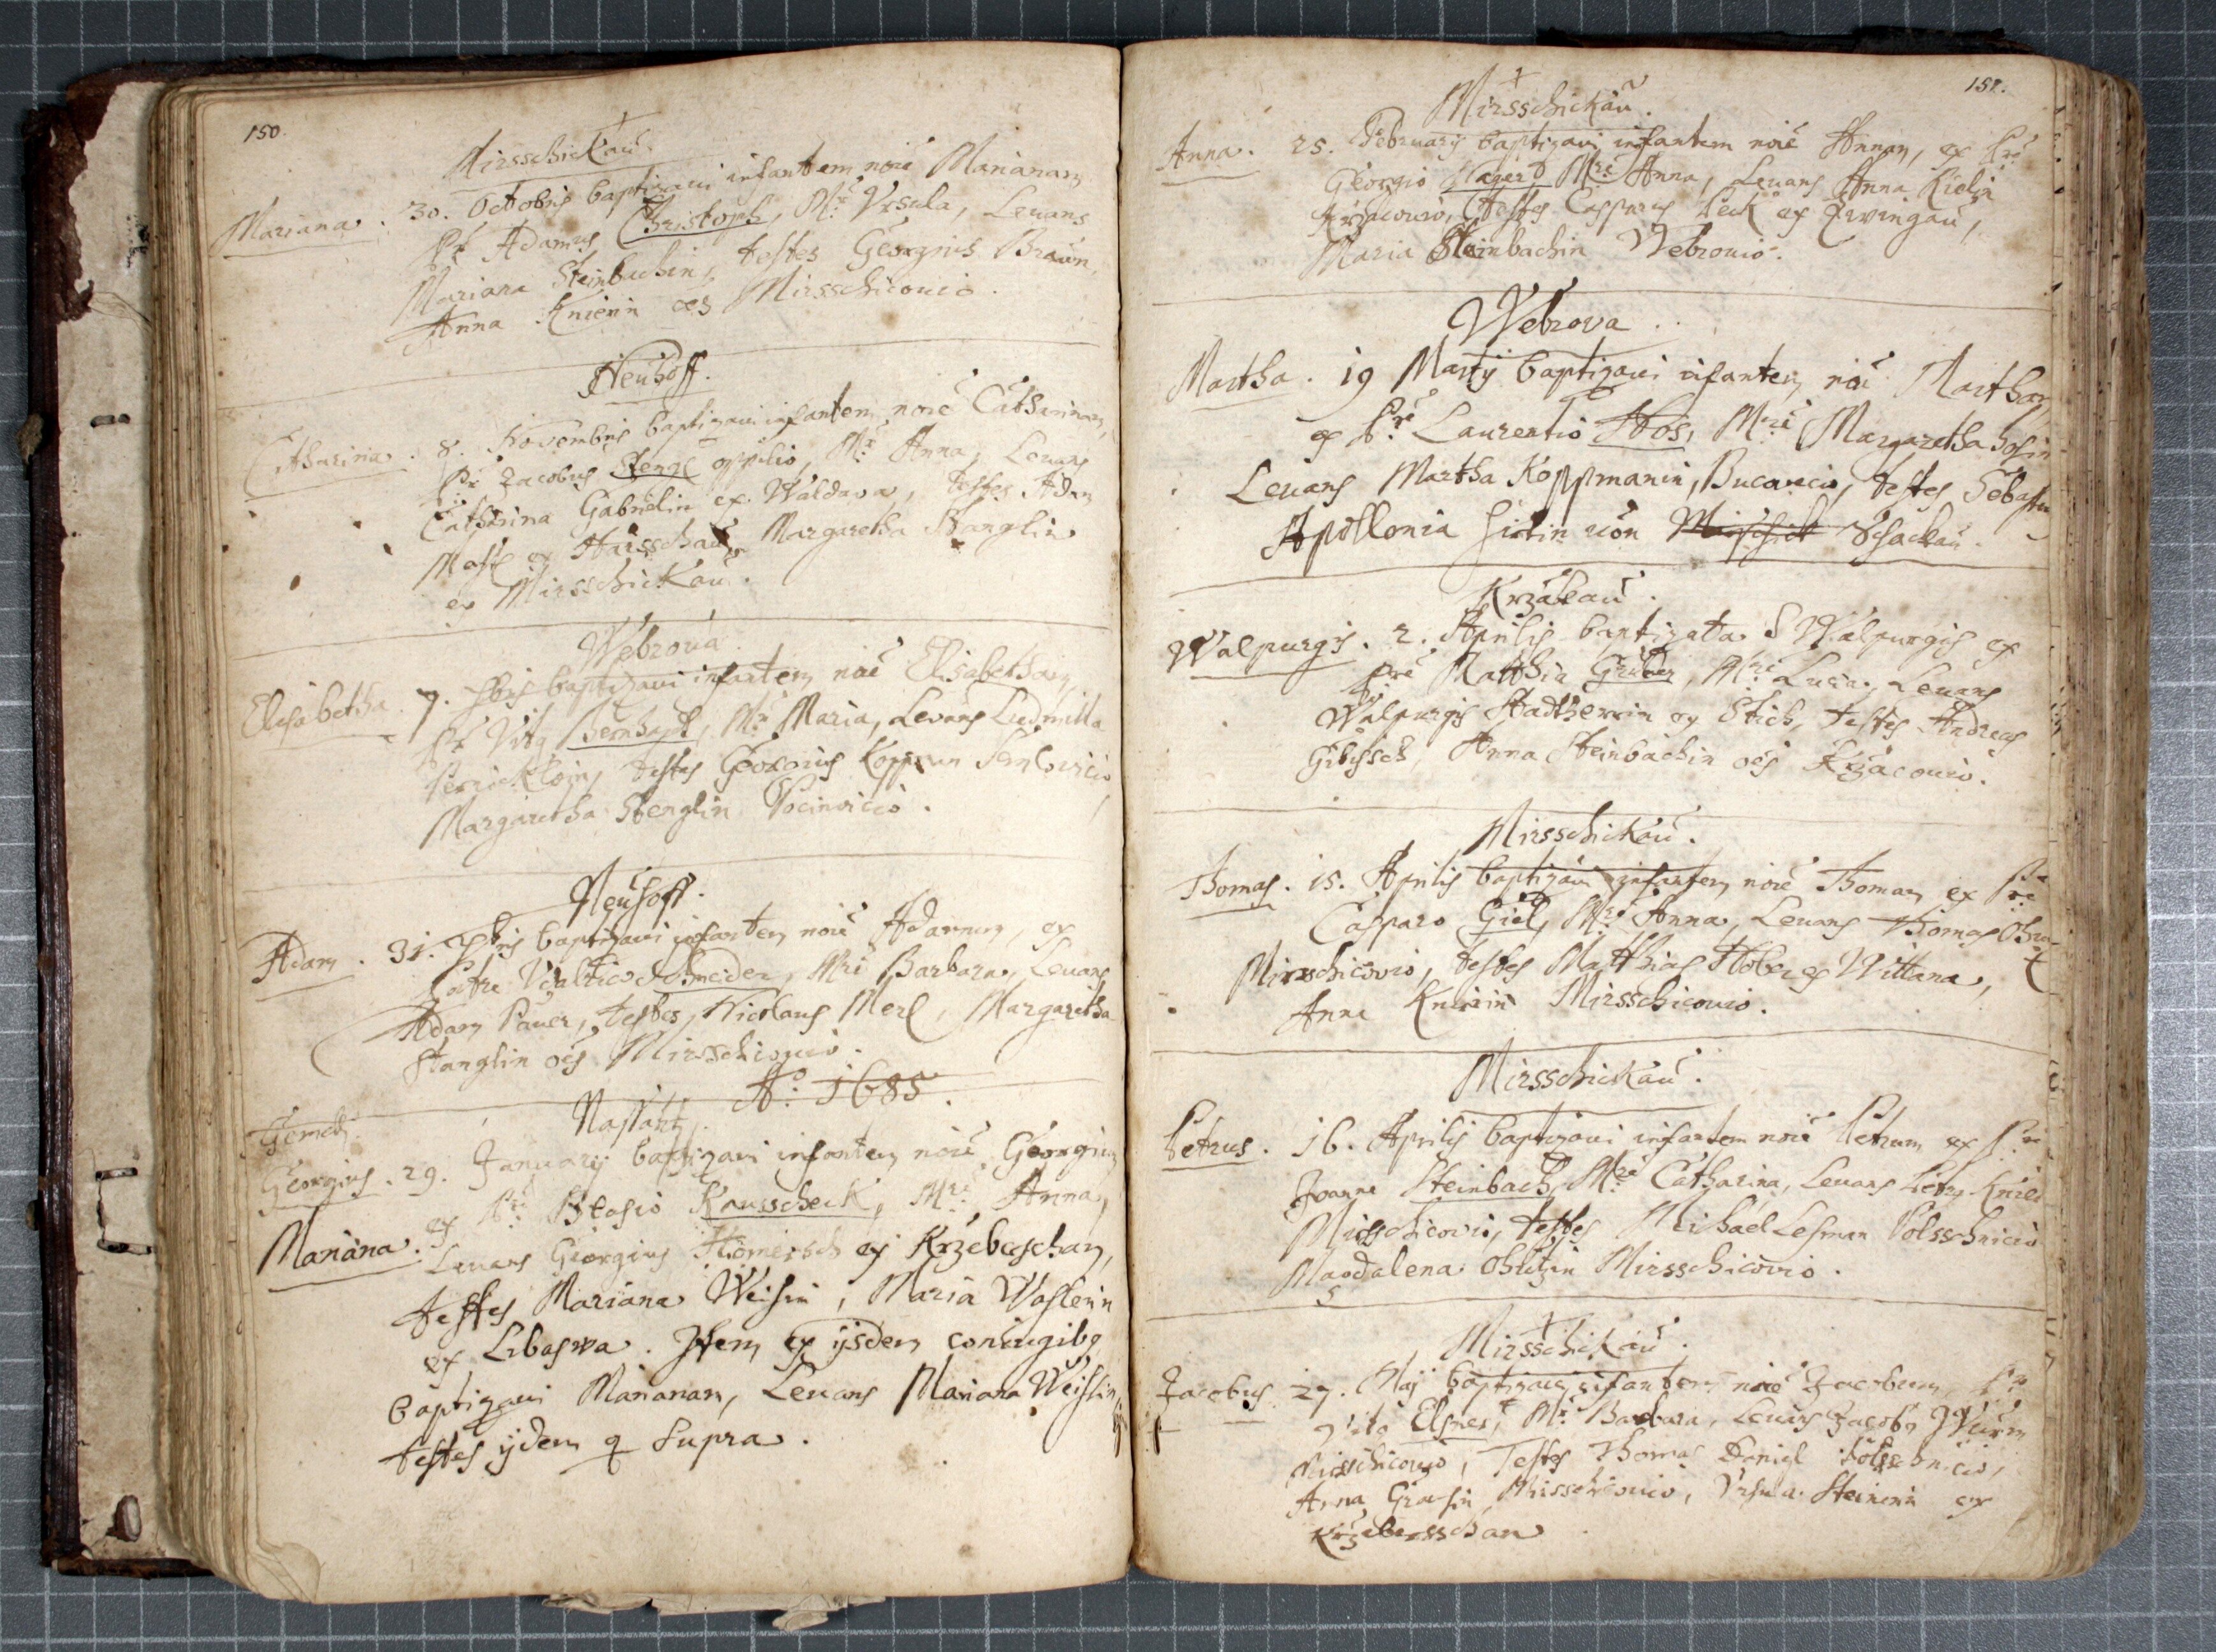 150.
Mirsschickau.
Mariana. 30. Octobris baptizavi infantem noie Marianam
Pr Adamus Christoph, Mr Vrsula, Levans
Mariana Steinbachin, testes Georgius Braun,
Anna Knierin oes Mirsschicovio.
Neuhoff.
Catharina. 8. Novembris baptizavi infantem noie Catharinam,
Pr Jacobus Stengl opilio, Mr Anna, Levans
Catharina Gabrielin ex Waldava, testes Adam
ex Margaretha Stanglin
ex Mirsschickau.
Webrova
Elisabetha. 7. baptizavi infantem noie Elisabetham
Pr Vitq Bernhardt, Mr Maria, Levans Ludmilla
testes Georgius Koppman
Margaretha Stenglin
Neuhoff.
Adam. 31. baptizavi infantem noie Adamum, ex
Patre Valtico Schneider, Mri Barbara, Levans
Adam Pauer, testes Nicolaus Merl, Margaretha
Stanglin oes Mirsschicovio.
Aº. 1685.
Gemelli.
Georgius. 29. January baptizavi infantem noie Georgium
ex Pri Blasio Kausscheck, Mri Anna,
Mariana. Levans Georgius ex Krzeberschan,
testes Mariana Weisin, Maria Waslerin
ex Lubaswa. Item ex ijsdem coniugibq
baptizavi Marianam, Levans Mariana Weislin
testes ijdem q supra.
151.
Mirsschickau.
Anna. 25. February baptizavi infantem noie Annam, ex Pre
Georgio Mre Anna, Levans Anna
Krzacovio, testes Casparus Peck ex Zwingau,
Maria Steinbachin Webrovio.
Webrova.
Martha. 19 Martij baptizavi infantem noie Martham
ex Pre Laurentio Hos, Mri Margaretha Hosin
Levans Martha Koppmanin, testes Sebastian
Apollonia von Schackau.
Krzakau.
Walpurgis. 2. Aprilis baptizata S Walpurgis ex
Pre Matthia Gruber, Mri Lucia, Levans
Walpurgis Stadtherrin ex Stich, testes Andreas
Anna Steinbachin oes Krzacovio.
Mirsschickau.
Thomas. 15. Aprilis baptizavi infantem noie Thomam ex Pre
Casparo Giel, Mre Anna, Levans Thomas
Mirsschicovio, testes Matthias ex Wittana,
Anna Knierin Mirsschicovio.
Mirsschickau.
Petrus. 16. Aprilis baptizavi infantem noie Petrum ex Pre
Joanne Steinbach, Mre Catharina, Levans Petrq
Mirsschicovio, testes Michael Lesman Polsschnicio
Magdalena Mirsschicovio.
Mirsschickau.
Jacobus 27. Maij baptizavi infantem noie Jacobum, Pr
Vitq Elsner, Mr Barbara, Levans Jacobq Wurm
Mirsschicovio, Testes Thomas Daniel Polsschnicio,
Anna Mirsschicovio, Vrsula Steinerin ex
Krzeberschan